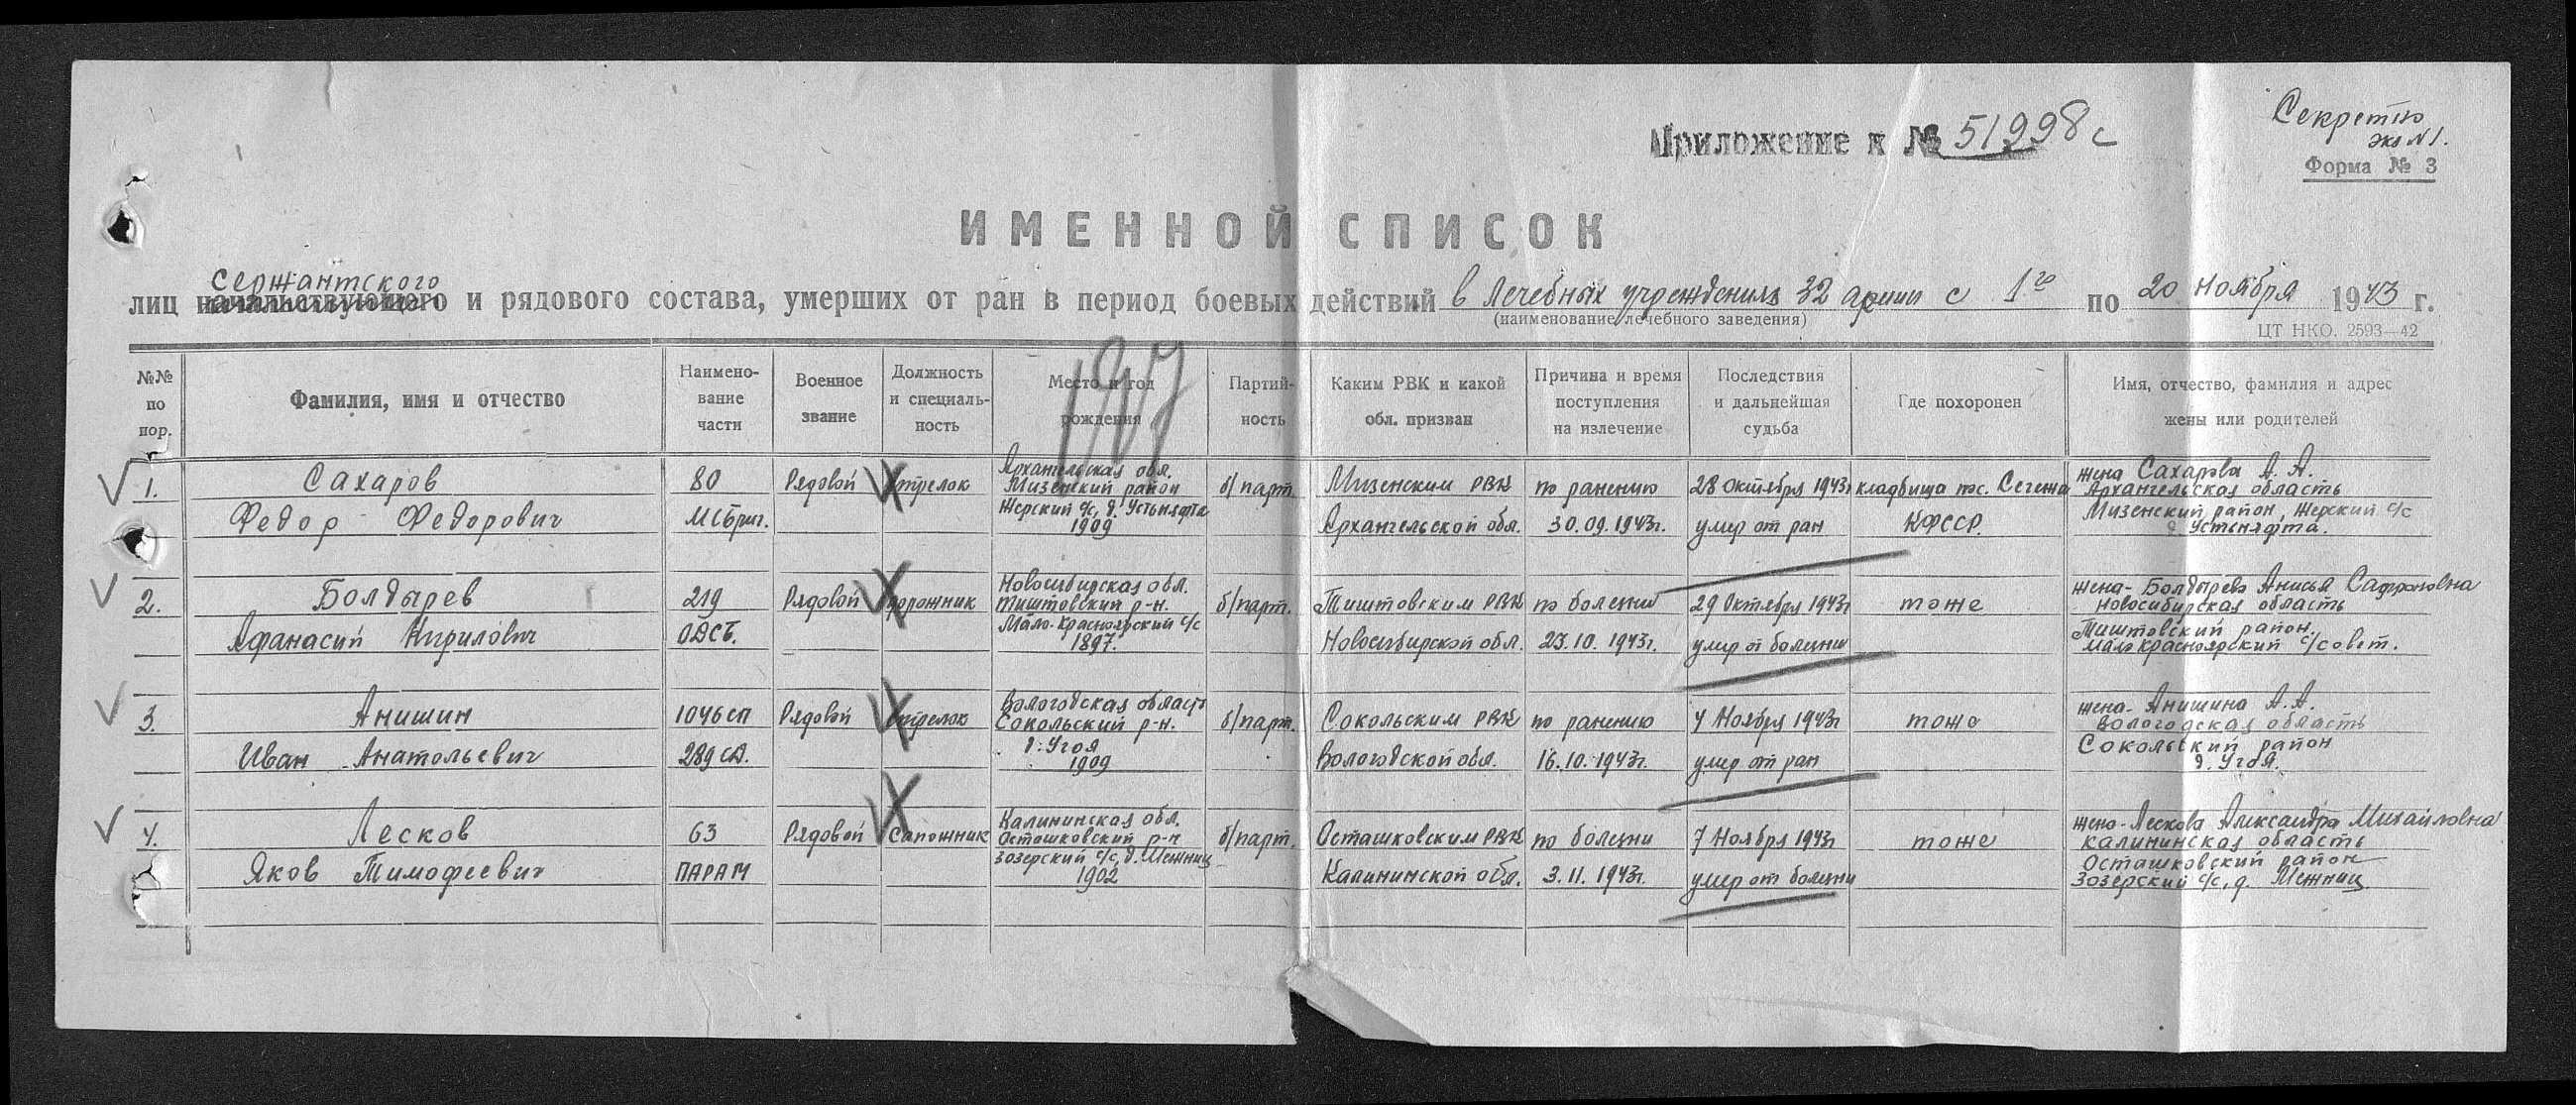 Секретно
экз №1.
Форма № 3
Приложение к № 51998с
ИМЕННОЙ СПИСОК
сержантского
лиц начальствующего и рядового состава, умерших от ран в период боевых действий в лечебных учреждениях 32 армии с 1го по 20 ноября 1943 г.
(наименование лечебного заведения)
ЦТ НКО. 2593—42
№№ по пор.
Фамилия, имя и отчество
Наимено-вание части
Военное звание
Должность и специаль-ность
Место и год рождения
Партий-ность
Каким РВК и какой обл. призван
Причина и время поступления на излечение
Последствия и дальнейшая судьба
Где похоронен
Имя, отчество, фамилия и адрес жены или родителей
1.
Сахаров
Федор Федорович
80
МСБриг.
Рядовой
стрелок
Архангельская обл.
Мизенский район
Жерский с/с, д. Устьняфта
1909
б/парт.
Мизенским РВК
Архангельской обл.
по ранению
30.09.1943г.
28 октября 1943г
умер от ран
кладбища пос. Сегежа
КФССР.
жена Сахарова А. А.
Архангельская область
Мизенский район, Жерский с/с
д. Устьняфта.
2.
Болдырев
Афанасий Кирилович
219
ОДСБ.
Рядовой
дорожник
Новосибирская обл.
Тиштовский р-н.
Мало-Красноярский с/с
1897.
б/парт.
Тиштовским РВК
Новосибирской обл.
по болезни
23.10.1943г.
29 Октября 1943г
умер от болезни
тоже
жена- Болдырева Анисья Сафроновна
Новосибирская область
Тиштовский район.
Мало красноярский с/совет.
3.
Анишин
Иван Анатольевич
1046сп
289 сд.
Рядовой
стрелок
Вологодская область
Сокольский р-н.
д. Угоя
1909
б/парт.
Сокольским РВК
Вологодской обл.
по ранению
16.10.1943г.
4 Ноября 1943г
умер от ран
тоже
жена- Анишина А.А.
Вологодская область
Сокольский район
д. Угоя.
4.
Лесков
Яков Тимофеевич
63
ПАРАМ
Рядовой
Сапожник
Калининская обл.
Осташковский р-н
Зозерский с/с, д. Межниц
1902
б/парт.
Осташковским РВК
Калининской обл.
по болезни
3.11.1943г.
7 Ноября 1943г
умер от болезни
тоже
жена- Лескова Александра Михайловна
Калининская область
Осташковский район
Зозерский с/с, д. Межниц.